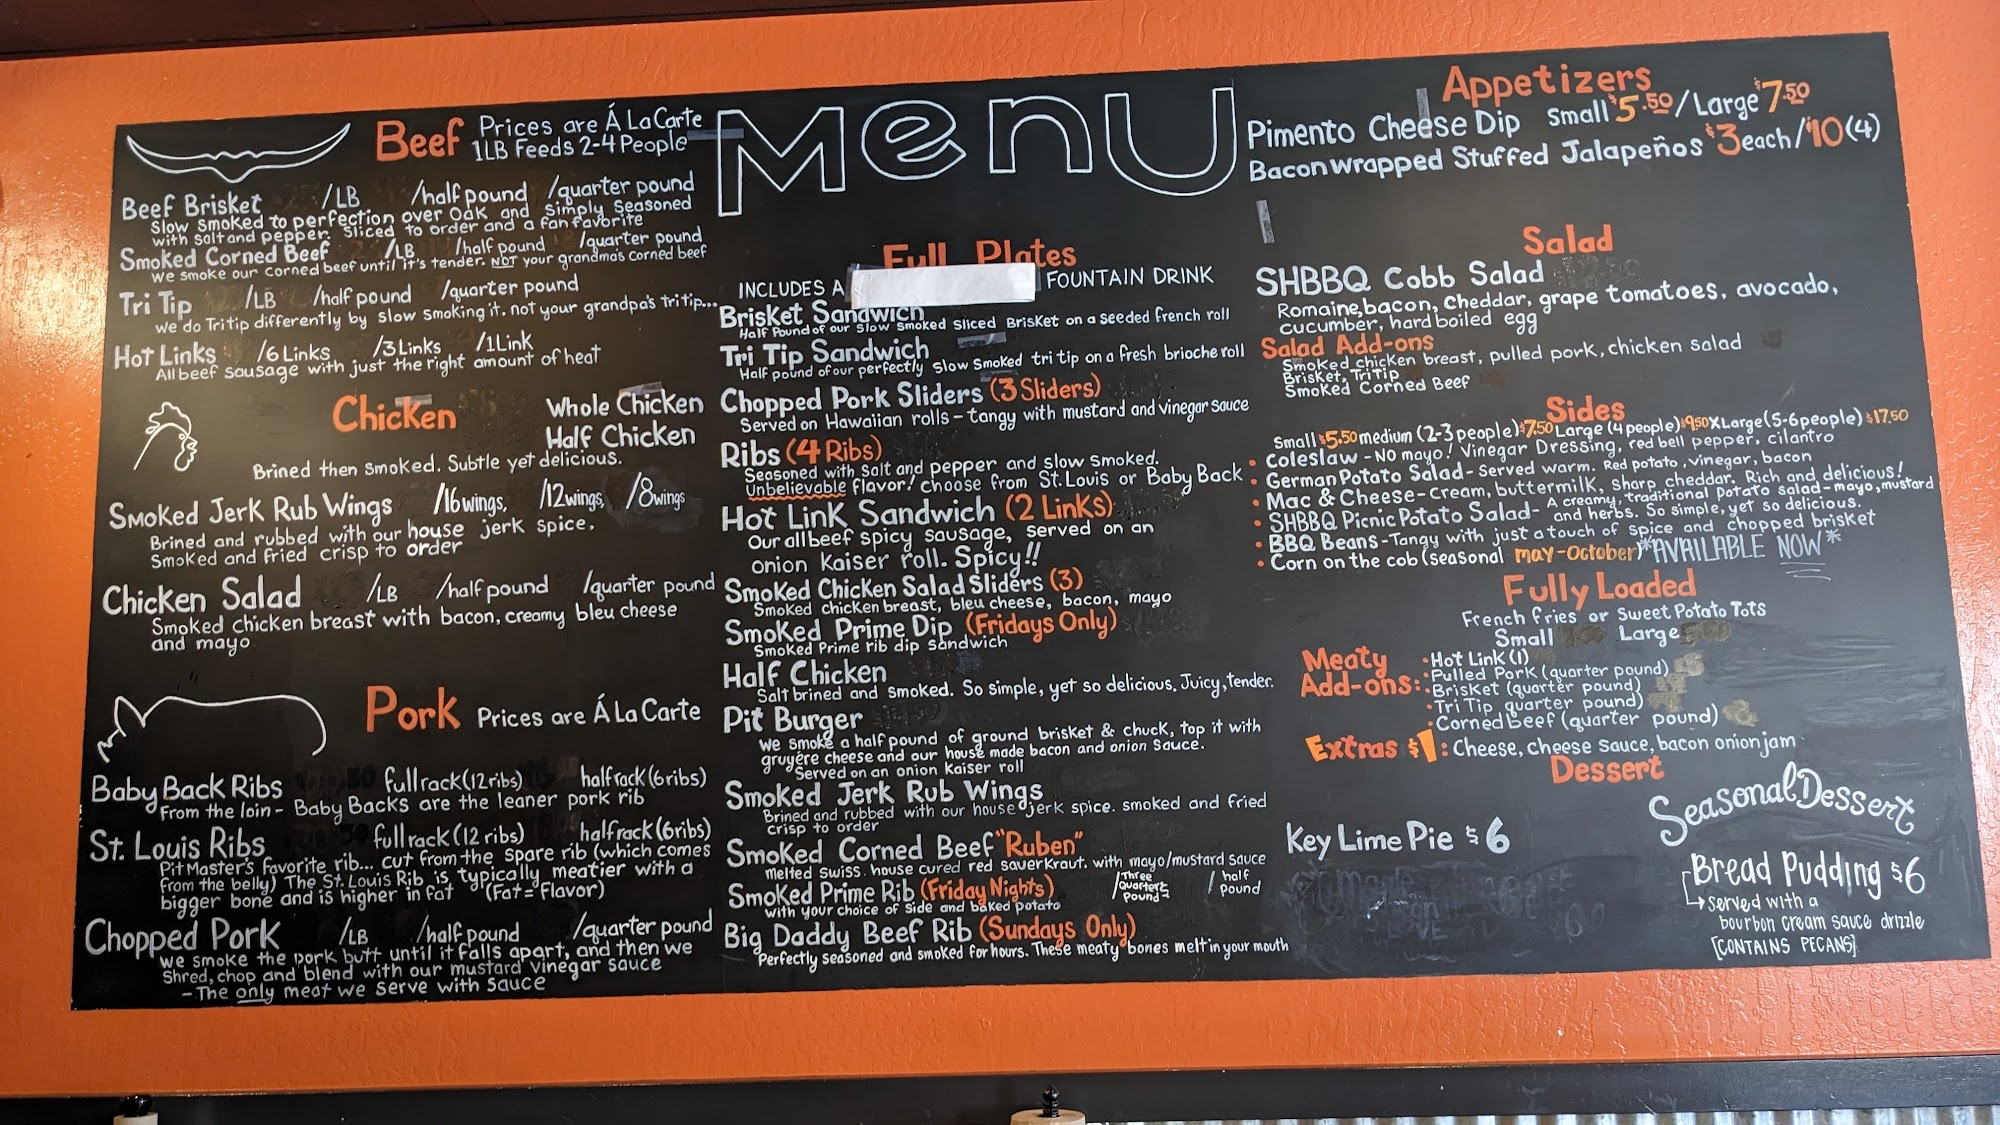 Menu
Beef Prices are Á La Carte
1LB Feeds 2-4 People
Beef Brisket /LB /half pound /quarter pound
Slow smoked to perfection over Oak and simply seasoned
with salt and pepper. Sliced to order and a fan favorite
Smoked Corned Beef /LB /half pound /quarter pound
We smoke our corned beef until it's tender. NOT your grandma's corned beef
Tri Tip /LB /half pound /quarter pound
We do Tritip differently by slow smoking it. not your grandpa's tritip...
Hot Links /6 Links /3 Links /1 Link
All beef sausage with just the right amount of heat
Chicken
Whole Chicken
Half Chicken
Brined then smoked. Subtle yet delicious.
Smoked Jerk Rub Wings /16 wings, /12 wings, /8 wings
Brined and rubbed with our house jerk spice,
Smoked and fried crisp to order
Chicken Salad /LB /half pound /quarter pound
Smoked chicken breast with bacon, creamy bleu cheese
and mayo
Pork Prices are Á La Carte
Baby Back Ribs full rack (12 ribs) half rack (6 ribs)
From the loin - Baby Backs are the leaner pork rib
St. Louis Ribs full rack (12 ribs) half rack (6 ribs)
Pit Master's favorite rib... cut from the spare rib (which comes
from the belly) The St. Louis Rib is typically meatier with a
bigger bone and is higher in fat (Fat = Flavor)
Chopped Pork /LB /half pound /quarter pound
We smoke the pork butt until it falls apart, and then we
Shred, chop and blend with our mustard vinegar sauce
- The only meat we serve with sauce
Full Plates
INCLUDES A FOUNTAIN DRINK
Brisket Sandwich
Half Pound of our slow smoked sliced Brisket on a seeded french roll
Tri Tip Sandwich
Half pound of our perfectly slow smoked tri tip on a fresh brioche roll
Chopped Pork Sliders (3 Sliders)
Served on Hawaiian rolls - tangy with mustard and vinegar sauce
Ribs (4 Ribs)
Seasoned with salt and pepper and slow smoked.
Unbelievable flavor! choose from St. Louis or Baby Back
Hot Link Sandwich (2 Links)
Our all beef spicy sausage, served on an
onion kaiser roll. Spicy!!
Smoked Chicken Salad Sliders (3)
Smoked chicken breast, bleu cheese, bacon, mayo
Smoked Prime Dip (Fridays Only)
Smoked Prime rib dip sandwich
Half Chicken
Salt brined and smoked. So simple, yet so delicious. Juicy, tender.
Pit Burger
We smoke a half pound of ground brisket & chuck, top it with
gruyére cheese and our house made bacon and onion sauce.
Served on an onion Kaiser roll
Smoked Jerk Rub Wings
Brined and rubbed with our house jerk spice. smoked and fried
crisp to order
Smoked Corned Beef "Ruben"
melted swiss. house cured red sauerkraut. with mayo/mustard sauce
Smoked Prime Rib (Friday Nights) /Three Quarters Pound /half pound
with your choice of side and baked potato
Big Daddy Beef Rib (Sundays Only)
Perfectly seasoned and smoked for hours. These meaty bones melt in your mouth
Appetizers
Pimento Cheese Dip Small $5.50 / Large $7.50
Bacon wrapped Stuffed Jalapeños $3 each / $10 (4)
Salad
SHBBQ Cobb Salad
Romaine, bacon, cheddar, grape tomatoes, avocado,
cucumber, hard boiled egg
Salad Add-ons
Smoked chicken breast, pulled pork, chicken salad
Brisket, Tri Tip
Smoked Corned Beef
Sides
Small $5.50 medium (2-3 people) $7.50 Large (4 people) $9.50 XLarge (5-6 people) $17.50
• Coleslaw - NO mayo! Vinegar Dressing, red bell pepper, cilantro
• German Potato Salad - Served warm. Red potato, vinegar, bacon
• Mac & Cheese - Cream, buttermilk, sharp cheddar. Rich and delicious!
• SHBBQ Picnic Potato Salad - A creamy, traditional potato salad - mayo, mustard
and herbs. So simple, yet so delicious.
• BBQ Beans - Tangy with just a touch of spice and chopped brisket
• Corn on the cob (seasonal may-October) *AVAILABLE NOW*
Fully Loaded
French fries or Sweet Potato Tots
Small Large
Meaty Add-ons:
• Hot Link (1)
• Pulled Pork (quarter pound)
• Brisket (quarter pound)
• Tri Tip quarter pound)
• Corned beef (quarter pound)
Extras $1: Cheese, cheese sauce, bacon onion jam
Dessert
Key Lime Pie $6
Seasonal Dessert
Bread Pudding $6
→ served with a
bourbon cream sauce drizzle
[CONTAINS PECANS]